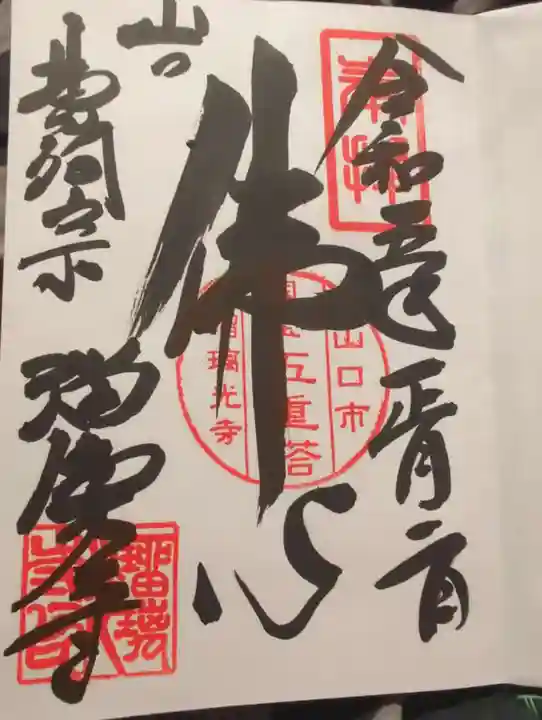 奉拝
令和五年正月二日
佛心
山口市
国宝五重塔
瑠璃光寺
山口
曹洞宗
瑠璃光寺